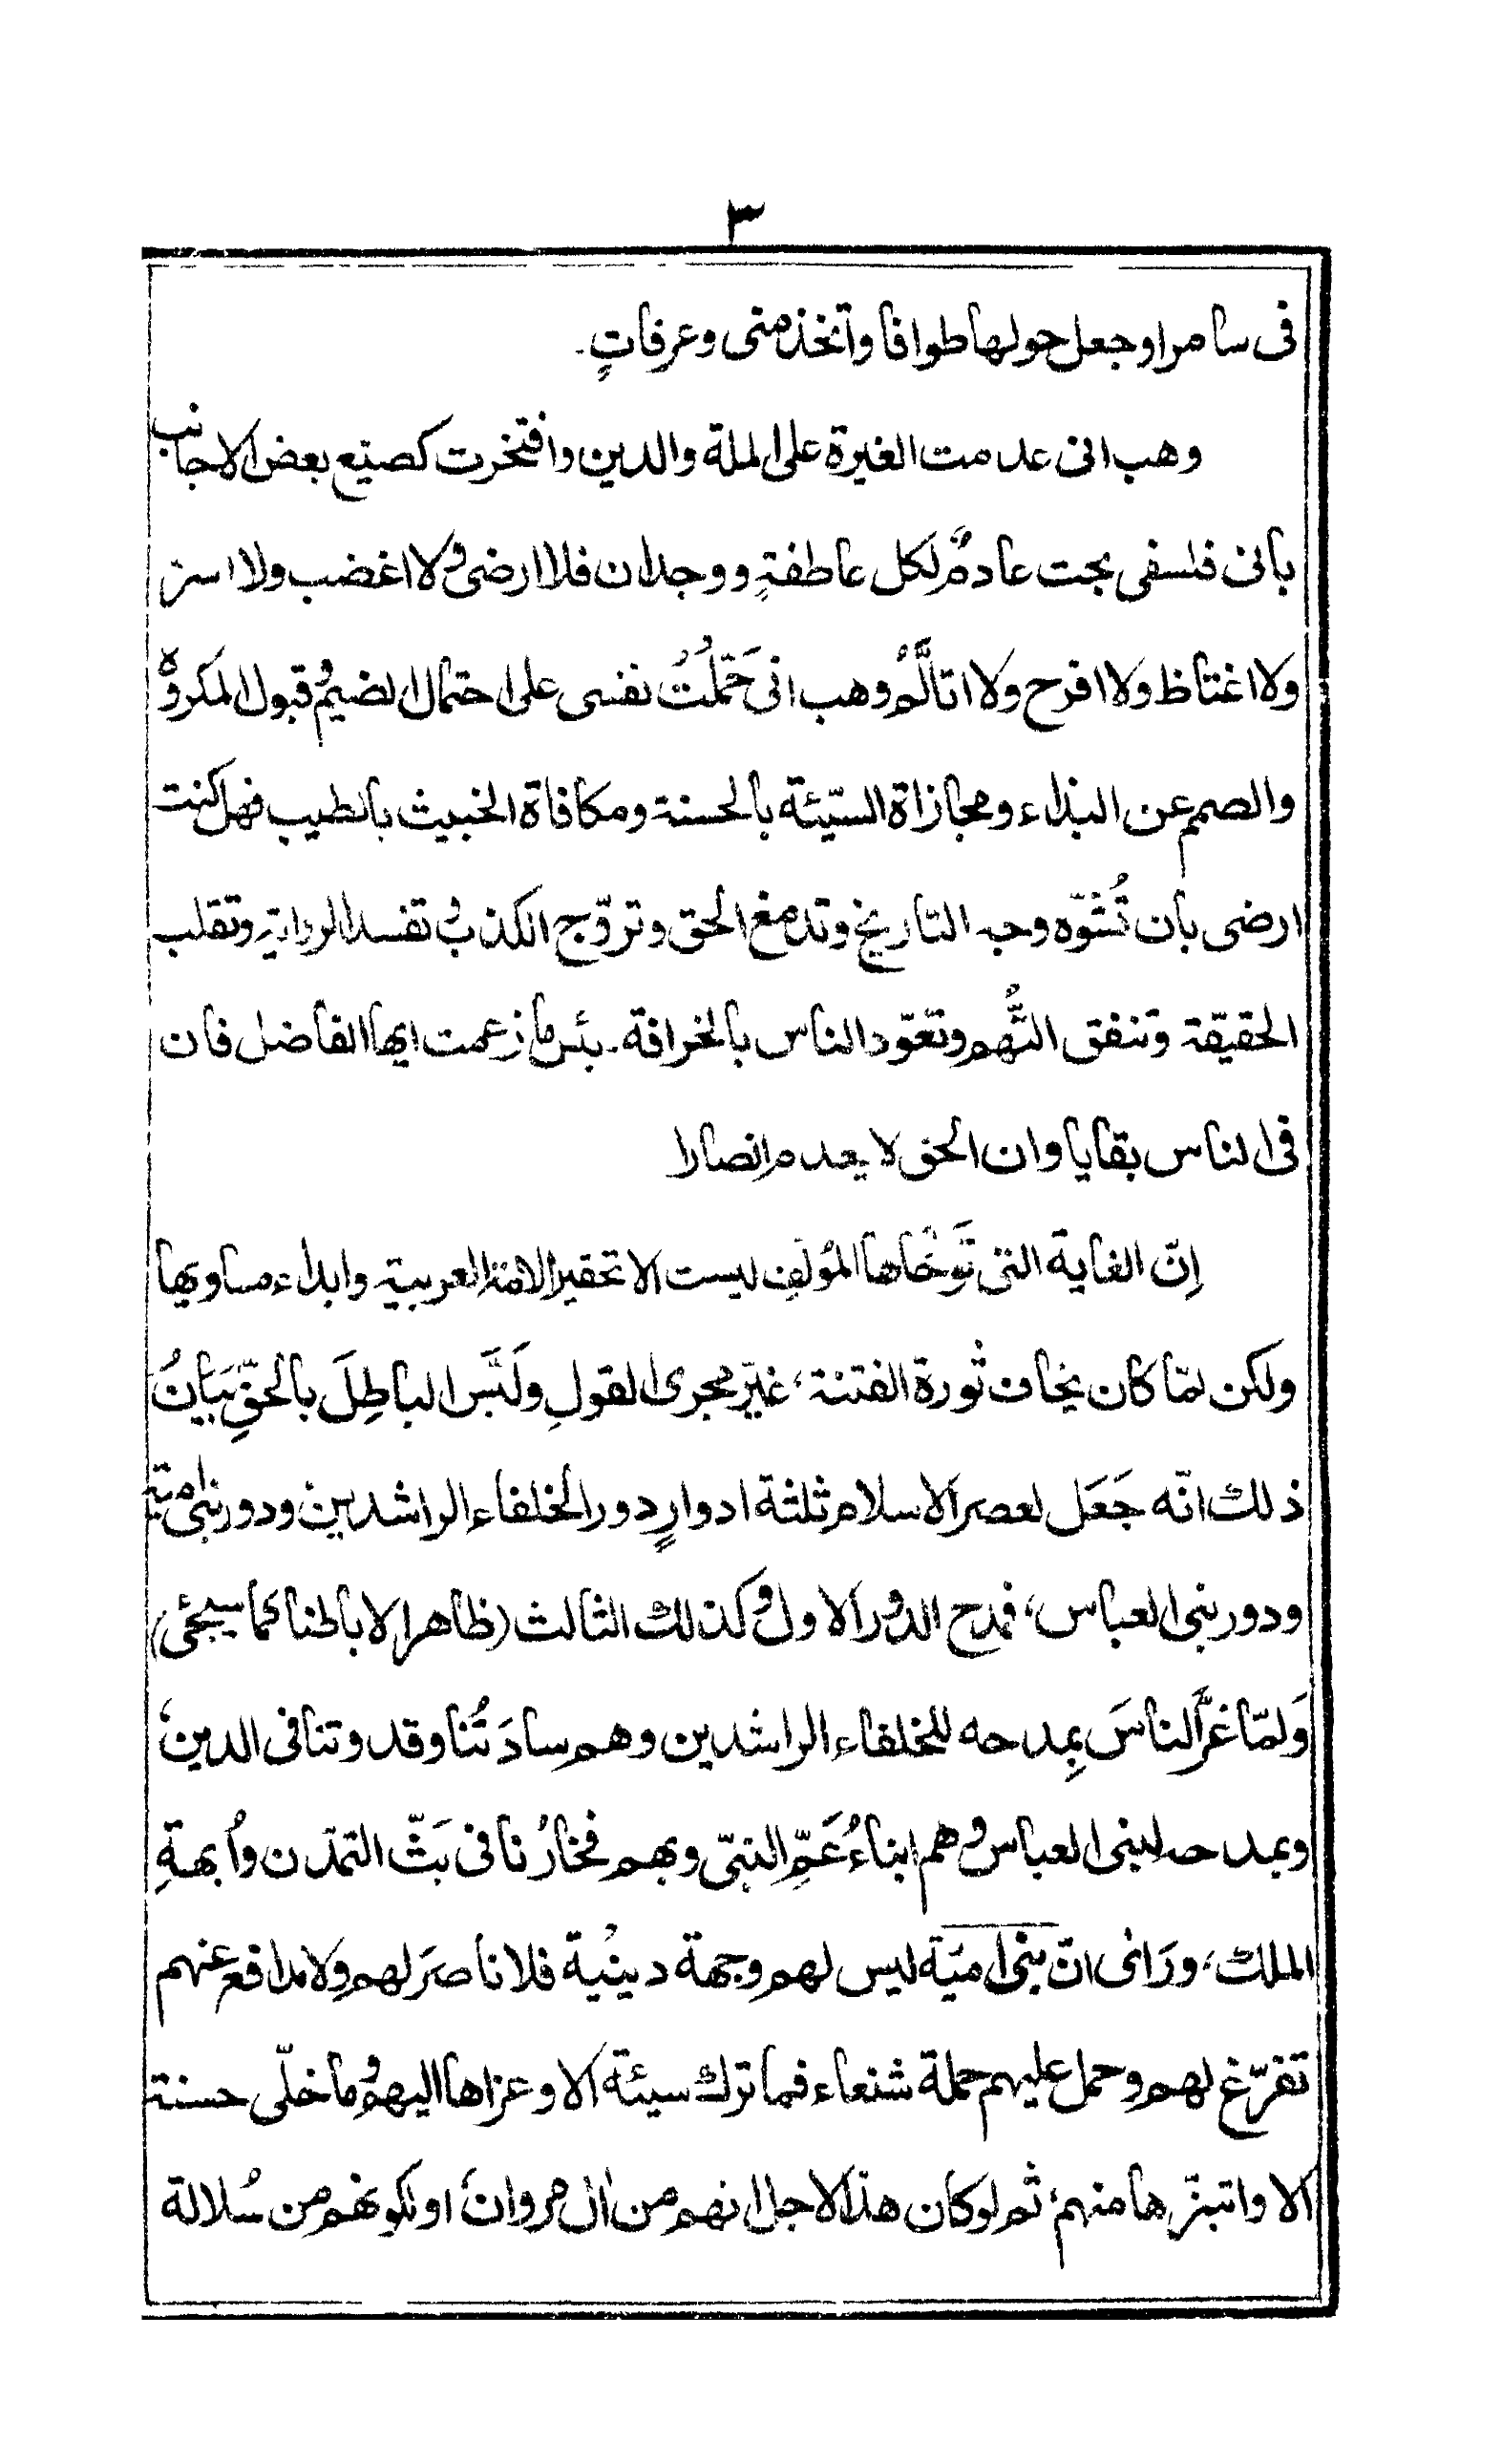 ٣
فى سامرا وجعل حولها طوافا وآتخذ منى وعرفاتٍ۔
وهب انى عدمت الغيرة على الملة والدين وافتخرت كصنيع بعض الاجانب
بأنى فلسفى بحت عادمٌ لكل عاطفةٍ ووجدان فلا ارضى ولا اغضب ولا اسر
ولا اغتاظ ولا افرح ولا اتألَّمُ وهب انى حَمَّلْتُ نفسى على احتمال الضيم وقبول المكروه
والصمم عن البذاء ومجازاة السّيئة بالحسنة ومكافاة الخبيث بالطيب فهل كنت
ارضى بان تُشوّه وجه التاريخ وتدمغ الحق وتروّج الكذب وتفسد الرواية وتقلب
الحقيقة وتنفق التُّهم وتعوّد الناس بالخرافة۔ بئس ما زعمت ايها الفاضل فان
فى الناس بقايا وان الحق لا يعدم انصارا
اِنّ الغاية التى تَوَخّاها المؤلف ليست الا تحقير الامة العربية وابداء مساويها
ولكن لمّا كان يخاف ثورة الفتنة، غيّر مجرى القولِ ولَبَّس الباطِلَ بالحقِّ بَيَانُ
ذلك انّه جَعَل لعصر الاسلام ثلثة ادوارٍ دور الخلفاء الراشدين ودور بنى امية
ودور بنى العباس، فمدح الدور الاول وكذلك الثالث (ظاهرا لا باطنا كما سيجئى)
وَلمّا غرَّ الناسَ بِمدحه للخلفاء الراشدين وهم سادَتُنا وقدوتنا فى الدين،
وبمدحه لبنى العباس وهم ابناءُ عَمِّ النبىّ وبهم فخارُنا فى بَثّ التمدّن واُبهةِ
الملك، ورَاٰى انّ بنى اميّة ليس لهم وجهة دينية فلا ناصرَ لهم ولا مدافع عنهم
تفرّغ لهم وحمل عليهم حملة شنعاء فما ترك سيئة الا وعزاها اليهم وما خلّى حسنة
الا وابتزّها منهم، ثم لو كان هذا لاجل انهم من اٰل مروان، او لكونهم من سُلالة